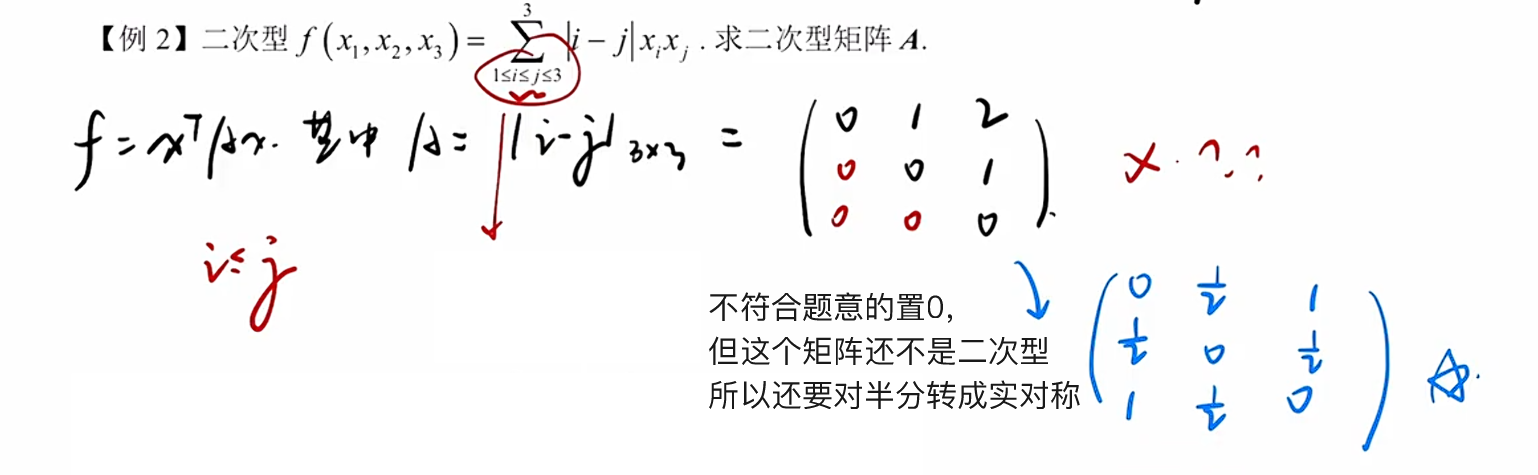 【例 2】二次型 f(x₁,x₂,x₃)= ∑_{1≤i≤j≤3}^{3} |i−j|xᵢxⱼ .求二次型矩阵 A.
f=xᵀAx. 其中 A= |i-j|₃ₓ₃ = (0 1 2
0 0 1 × . ? . ? ?
0 0 0).
i≤j
不符合题意的置0,
但这个矩阵还不是二次型
所以还要对半分转成实对称
(0 1/2 1
1/2 0 1/2 A.
1 1/2 0)